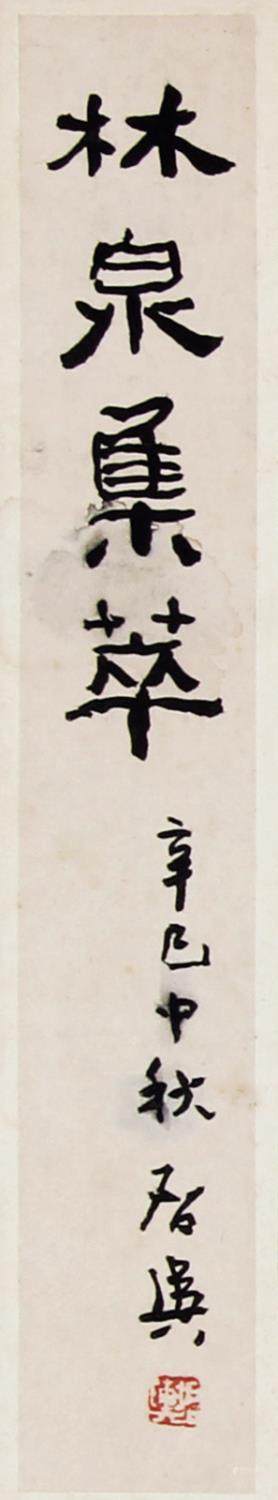 林泉集萃
辛巳中秋